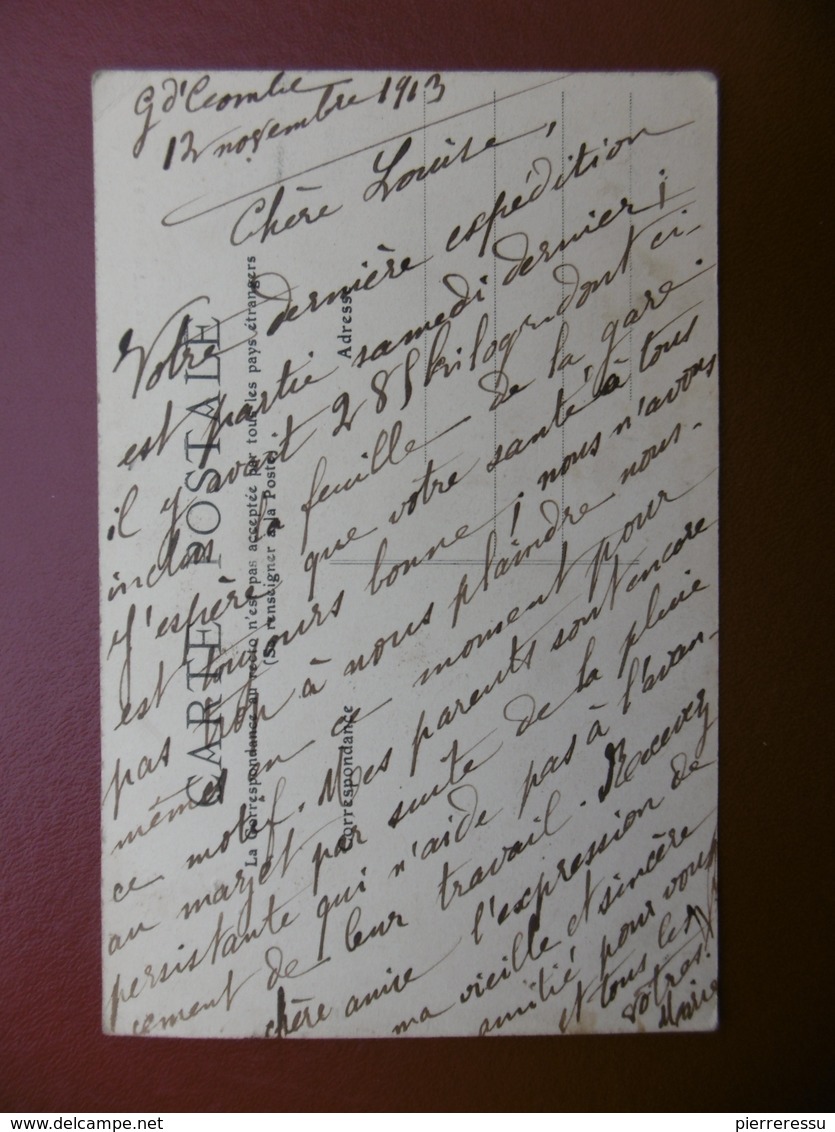 Gd'Combe
12 novembre 1913
Chère Louise,
Votre dernière expédition
est partie samedi dernier ;
il y avait 285 kilogr. dont ci-
inclus la feuille de la gare.
J'espère que votre santé à tous
est toujours bonne ; nous n'avons
pas à nous plaindre nous-
mêmes en ce moment pour
ce motif. Mes parents sont encore
au marjet par suite de la pluie
persistante qui n'aide pas à l'avan-
cement de leur travail. Recevez
chère amie l'expression de
ma vieille et sincère
amitié pour vous
et tous les
vôtres.
Marie
CARTE POSTALE
La Correspondance au recto n'est pas acceptée par tous les pays étrangers
(Se renseigner à la Poste)
Correspondance
Adresse
delcampe.net
pierreressu